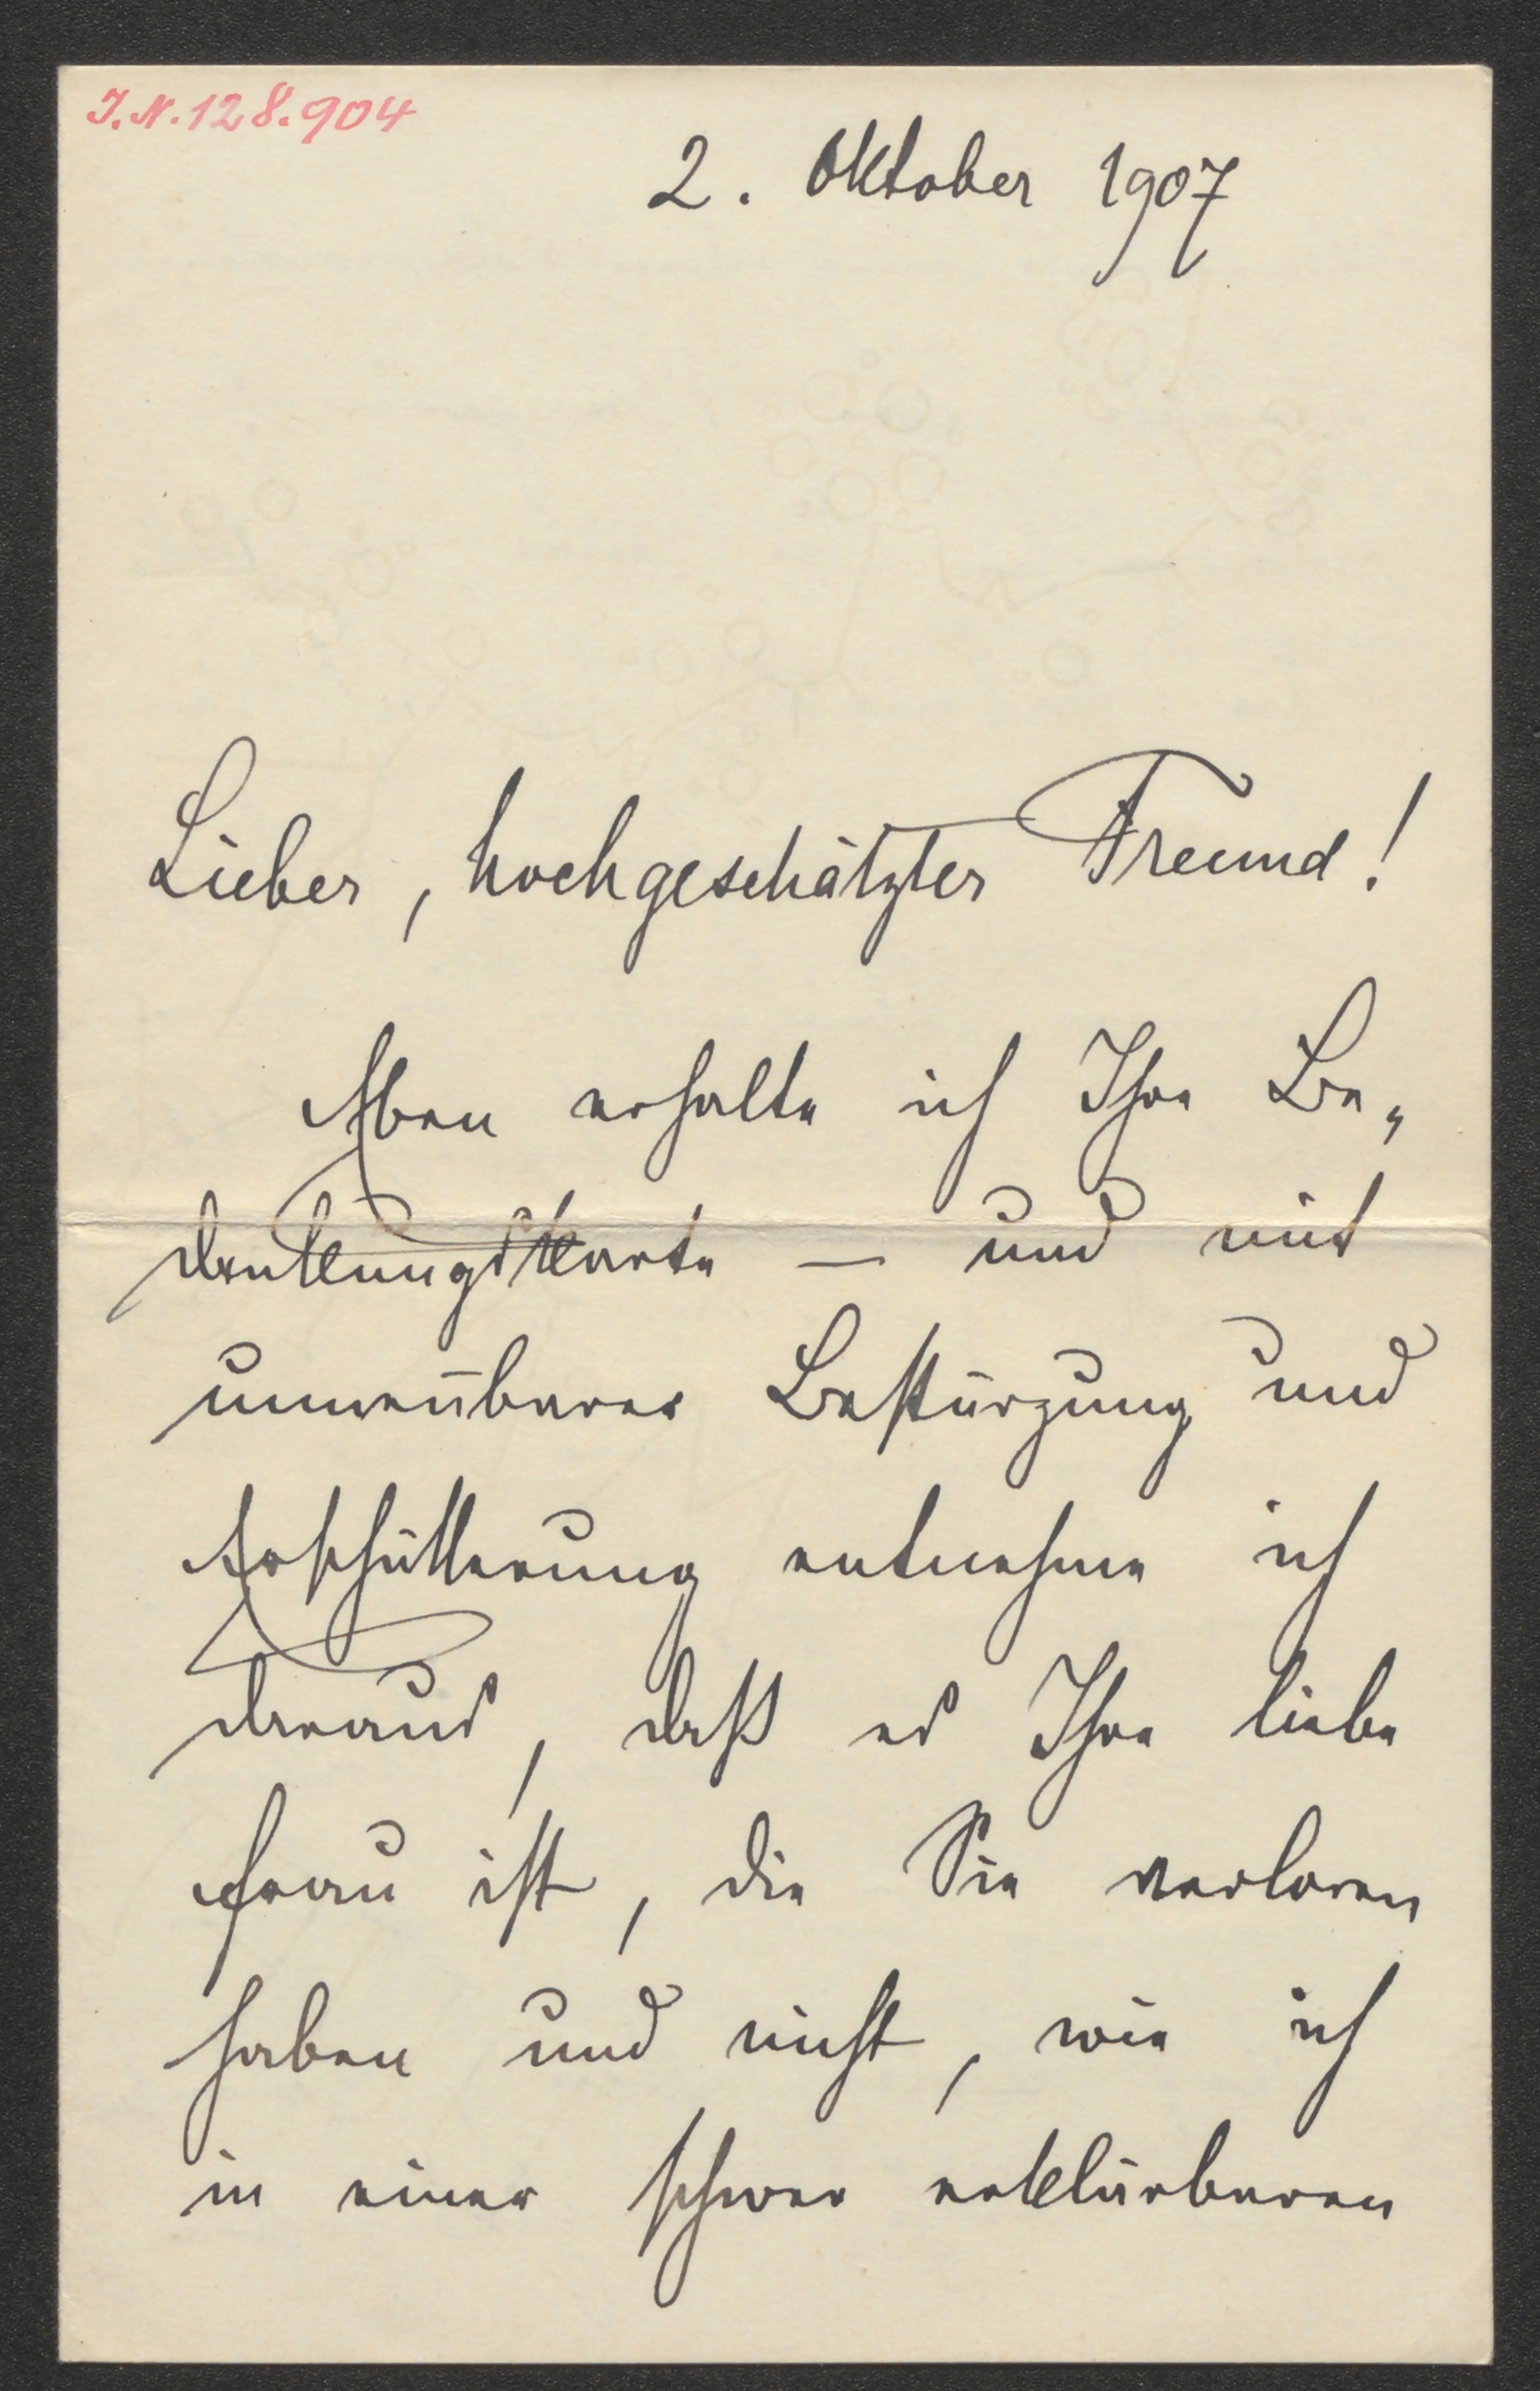 I.N. 128.904
2. Oktober 1907
Lieber, hochgeschätzter Freund!
Eben erhalte ich Ihre Be„
dankungskarte — und mit
unnennbarer Bestürzung und
Erschütterung entnehme ich
daraus, daß es Ihre liebe
Frau ist, die Sie verloren
haben und nicht, wie ich
in einer schwer erklärbaren